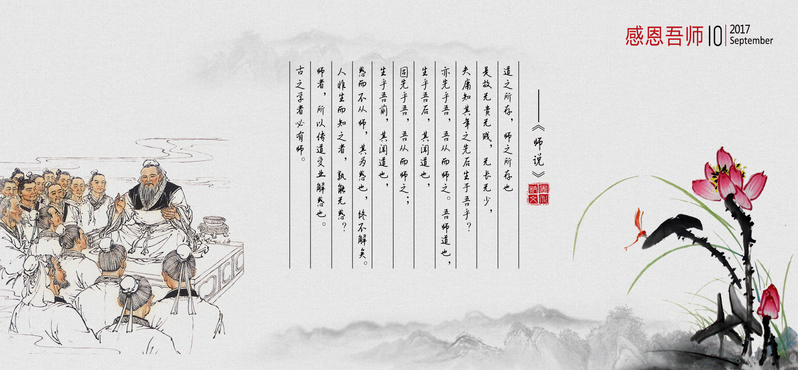 感恩吾师 10 2017
September
古之学者必有师。
师者，所以传道受业解惑也。
人非生而知之者，孰能无惑？
惑而不从师，其为惑也，终不解矣。
生乎吾前，其闻道也，
固先乎吾，吾从而师之；
生乎吾后，其闻道也，
亦先乎吾，吾从而师之。吾师道也，
夫庸知其年之先后生于吾乎？
是故无贵无贱，无长无少，
道之所存，师之所存也
——《师说》